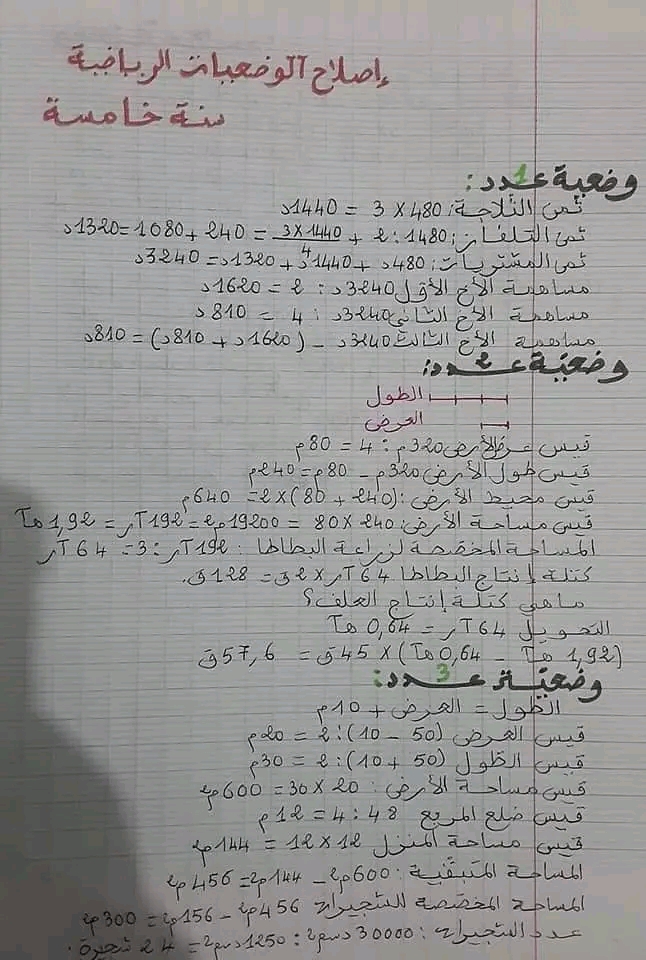 إصلاح الوضعيات الرياضية
سنة خامسة
وضعية عدد 1:
ثمن الثلاجة: 480 × 3 = 1440د
ثمن التلفاز: 1480 : 2 + 3×1440/4 = 240 + 1080 = 1320د
ثمن المشتريات: 480د + 1440د + 1320د = 3240د
مساهمة الأخ الأول 3240د : 2 = 1620د
مساهمة الأخ الثاني 3240د : 4 = 810د
مساهمة الأخ الثالث 3240د - (1620د + 810د) = 810د
وضعية عدد 2:
الطول
العرض
قيس عرض الأرض 320م : 4 = 80م
قيس طول الأرض 320م - 80م = 240م
قيس محيط الأرض: (240 + 80) × 2 = 640م
قيس مساحة الأرض: 240 × 80 = 19200م2 = 192آر = 1,92هآ
المساحة المخصصة لزراعة البطاطا: 192آر : 3 = 64آر
كتلة إنتاج البطاطا 64آر × 2ق = 128ق.
ماهي كتلة إنتاج العلف؟
التحويل 64آر = 0,64هآ
(1,92هآ - 0,64هآ) × 45ق = 57,6ق
وضعية عدد 3:
الطول = العرض + 10م
قيس العرض (50 - 10) : 2 = 20م
قيس الطول (50 + 10) : 2 = 30م
قيس مساحة الأرض: 20 × 30 = 600م2
قيس ضلع المربع 48 : 4 = 12م
قيس مساحة المنزل 12 × 12 = 144م2
المساحة المتبقية: 600م2 - 144م2 = 456م2
المساحة المخصصة للشجيرات 456م2 - 156م2 = 300م2
عدد الشجيرات: 30000دسم2 : 1250دسم2 = 24 شجيرة.